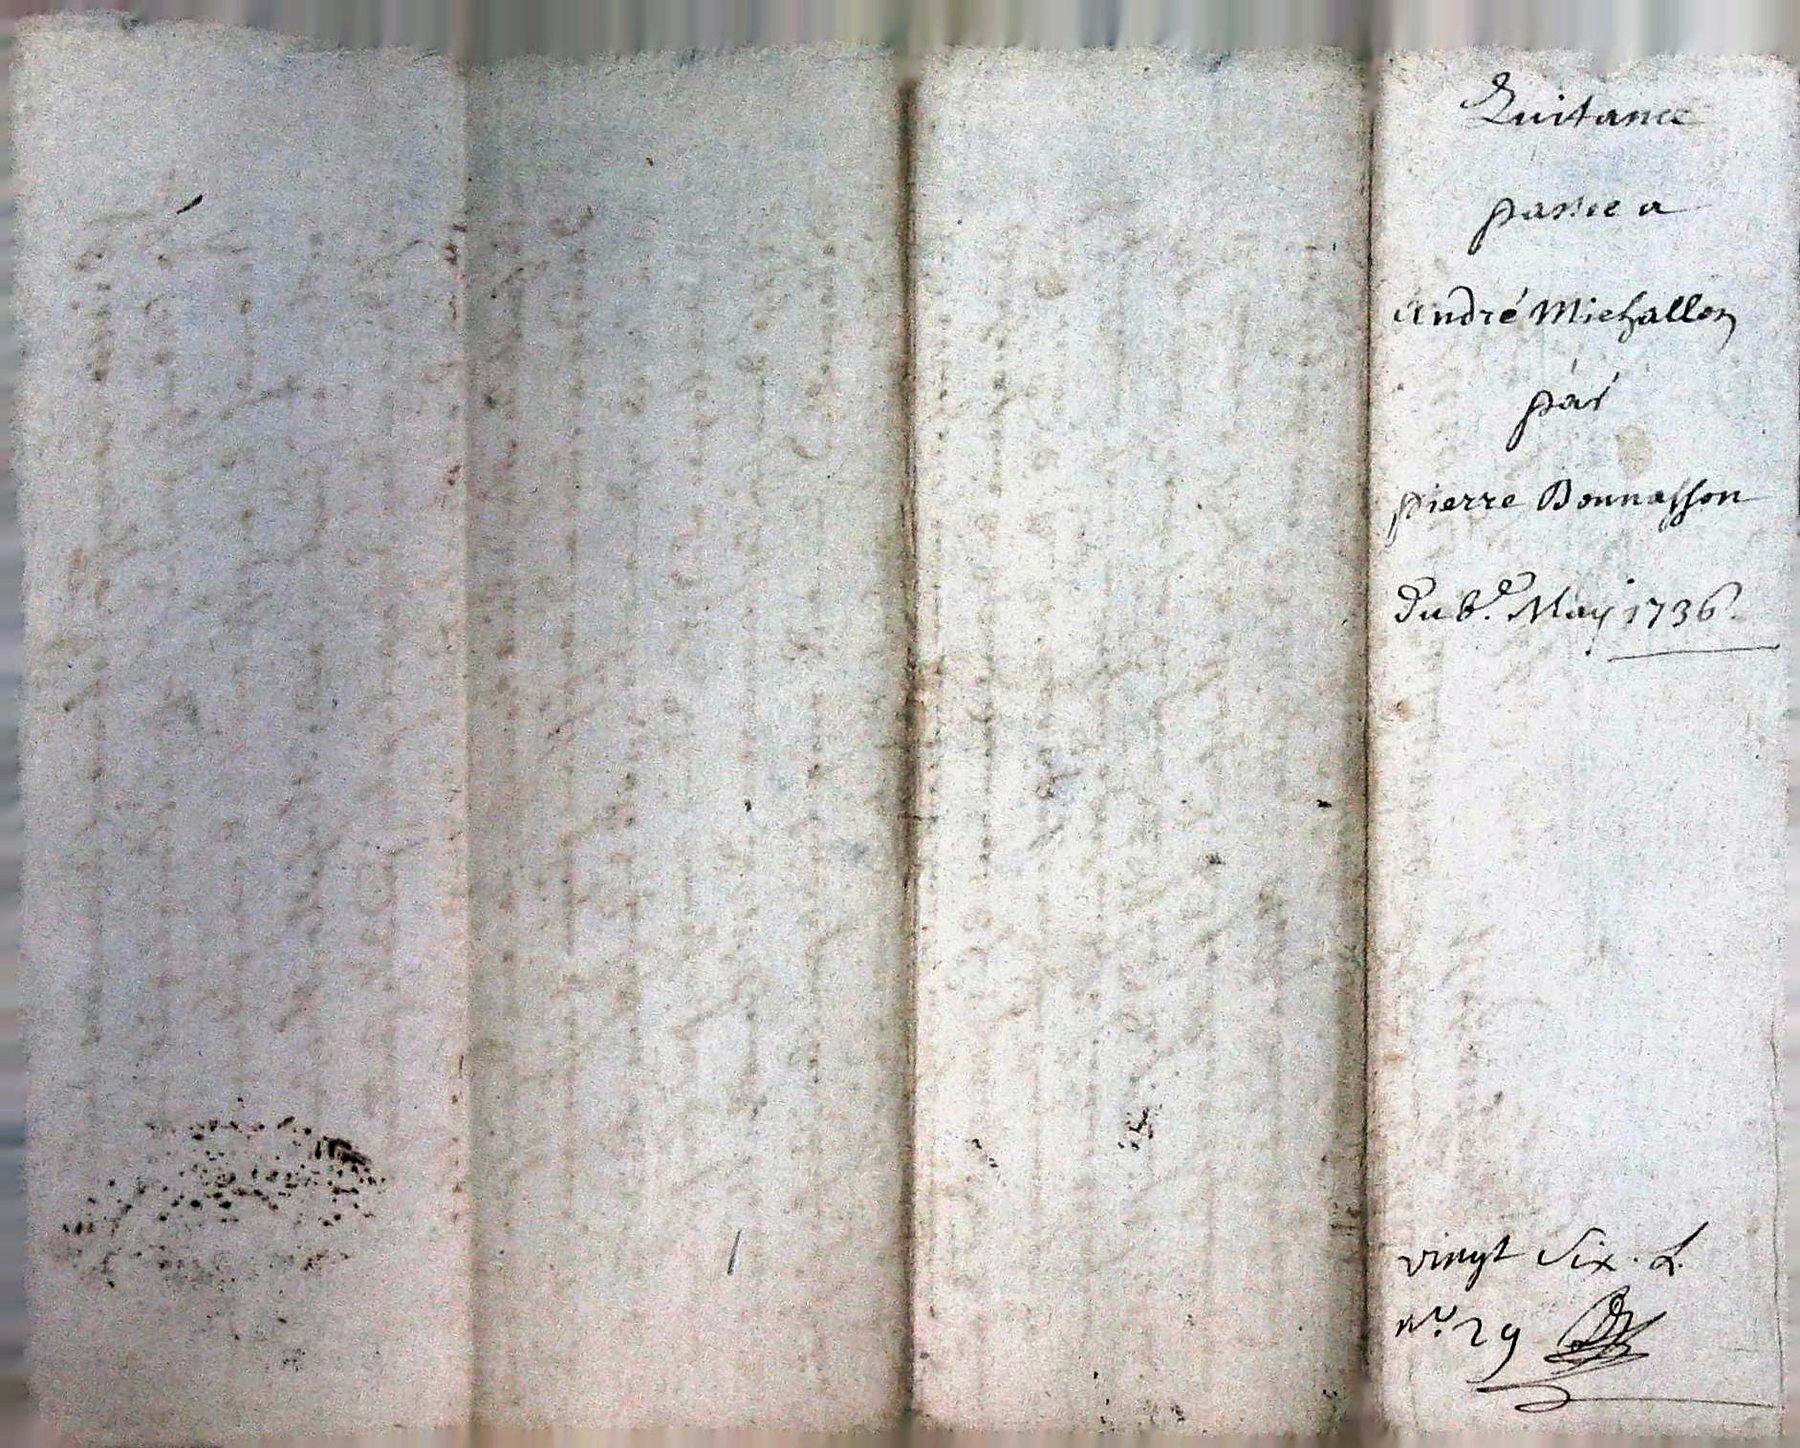 Quitance
passée a
André Michallon
par
pierre Bonnasson
Du 8e. May 1736.
vingt six. L.
No. 29